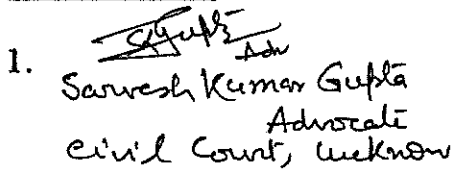 1. SKGupta Adv
Sarvesh Kumar Gupta
Advocate
Civil Court, Lucknow